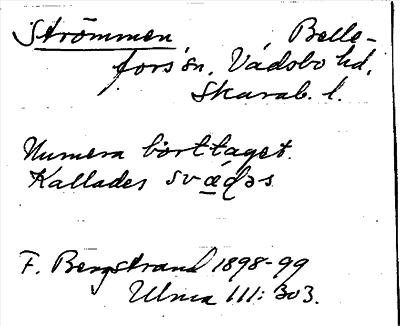 Strömmen, Belle-
fors sn, Vadsbo hd,
Skarab. l.
Numera borttaget.
Kallades svädəs
F. Bergstrand 1898-99
Ulma 111:303.